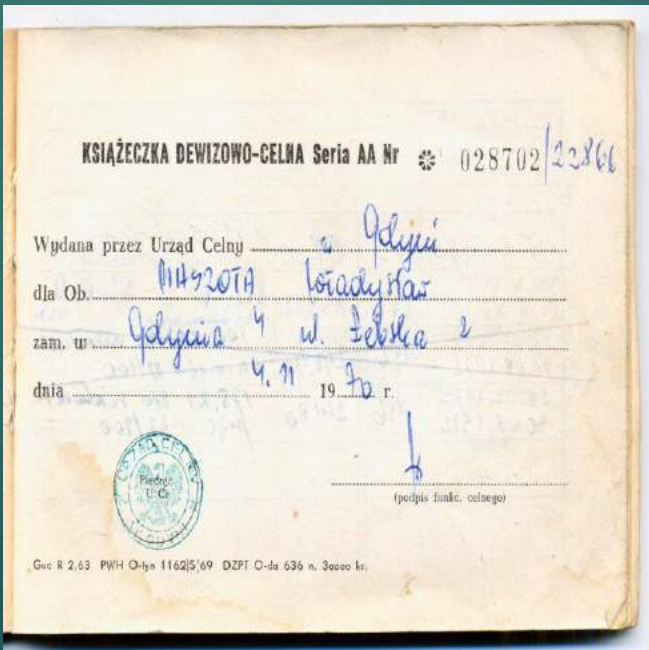 KSIĄŻECZKA DEWIZOWO-CELNA Seria AA Nr 028702/22866
Wydana przez Urząd Celny w Gdyni
dla Ob. MASZOTA Władysław
zam. w Gdynia 4 ul. Żebska 2
dnia 4.11 1970 r.
(podpis funkc. celnego)
URZĄD CELNY
Pieczęć
U. C.
Gac R 2,63 PWH O-tyn 1162/S/69 DZPT O-da 636 n. 30000 ks.